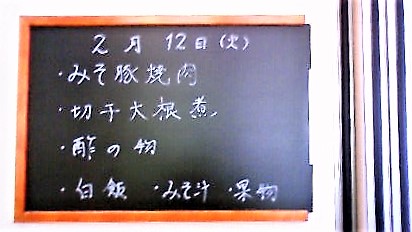 2月12日(火)
・みそ豚焼肉
・切干大根煮
・酢の物
・白飯 ・みそ汁 ・果物